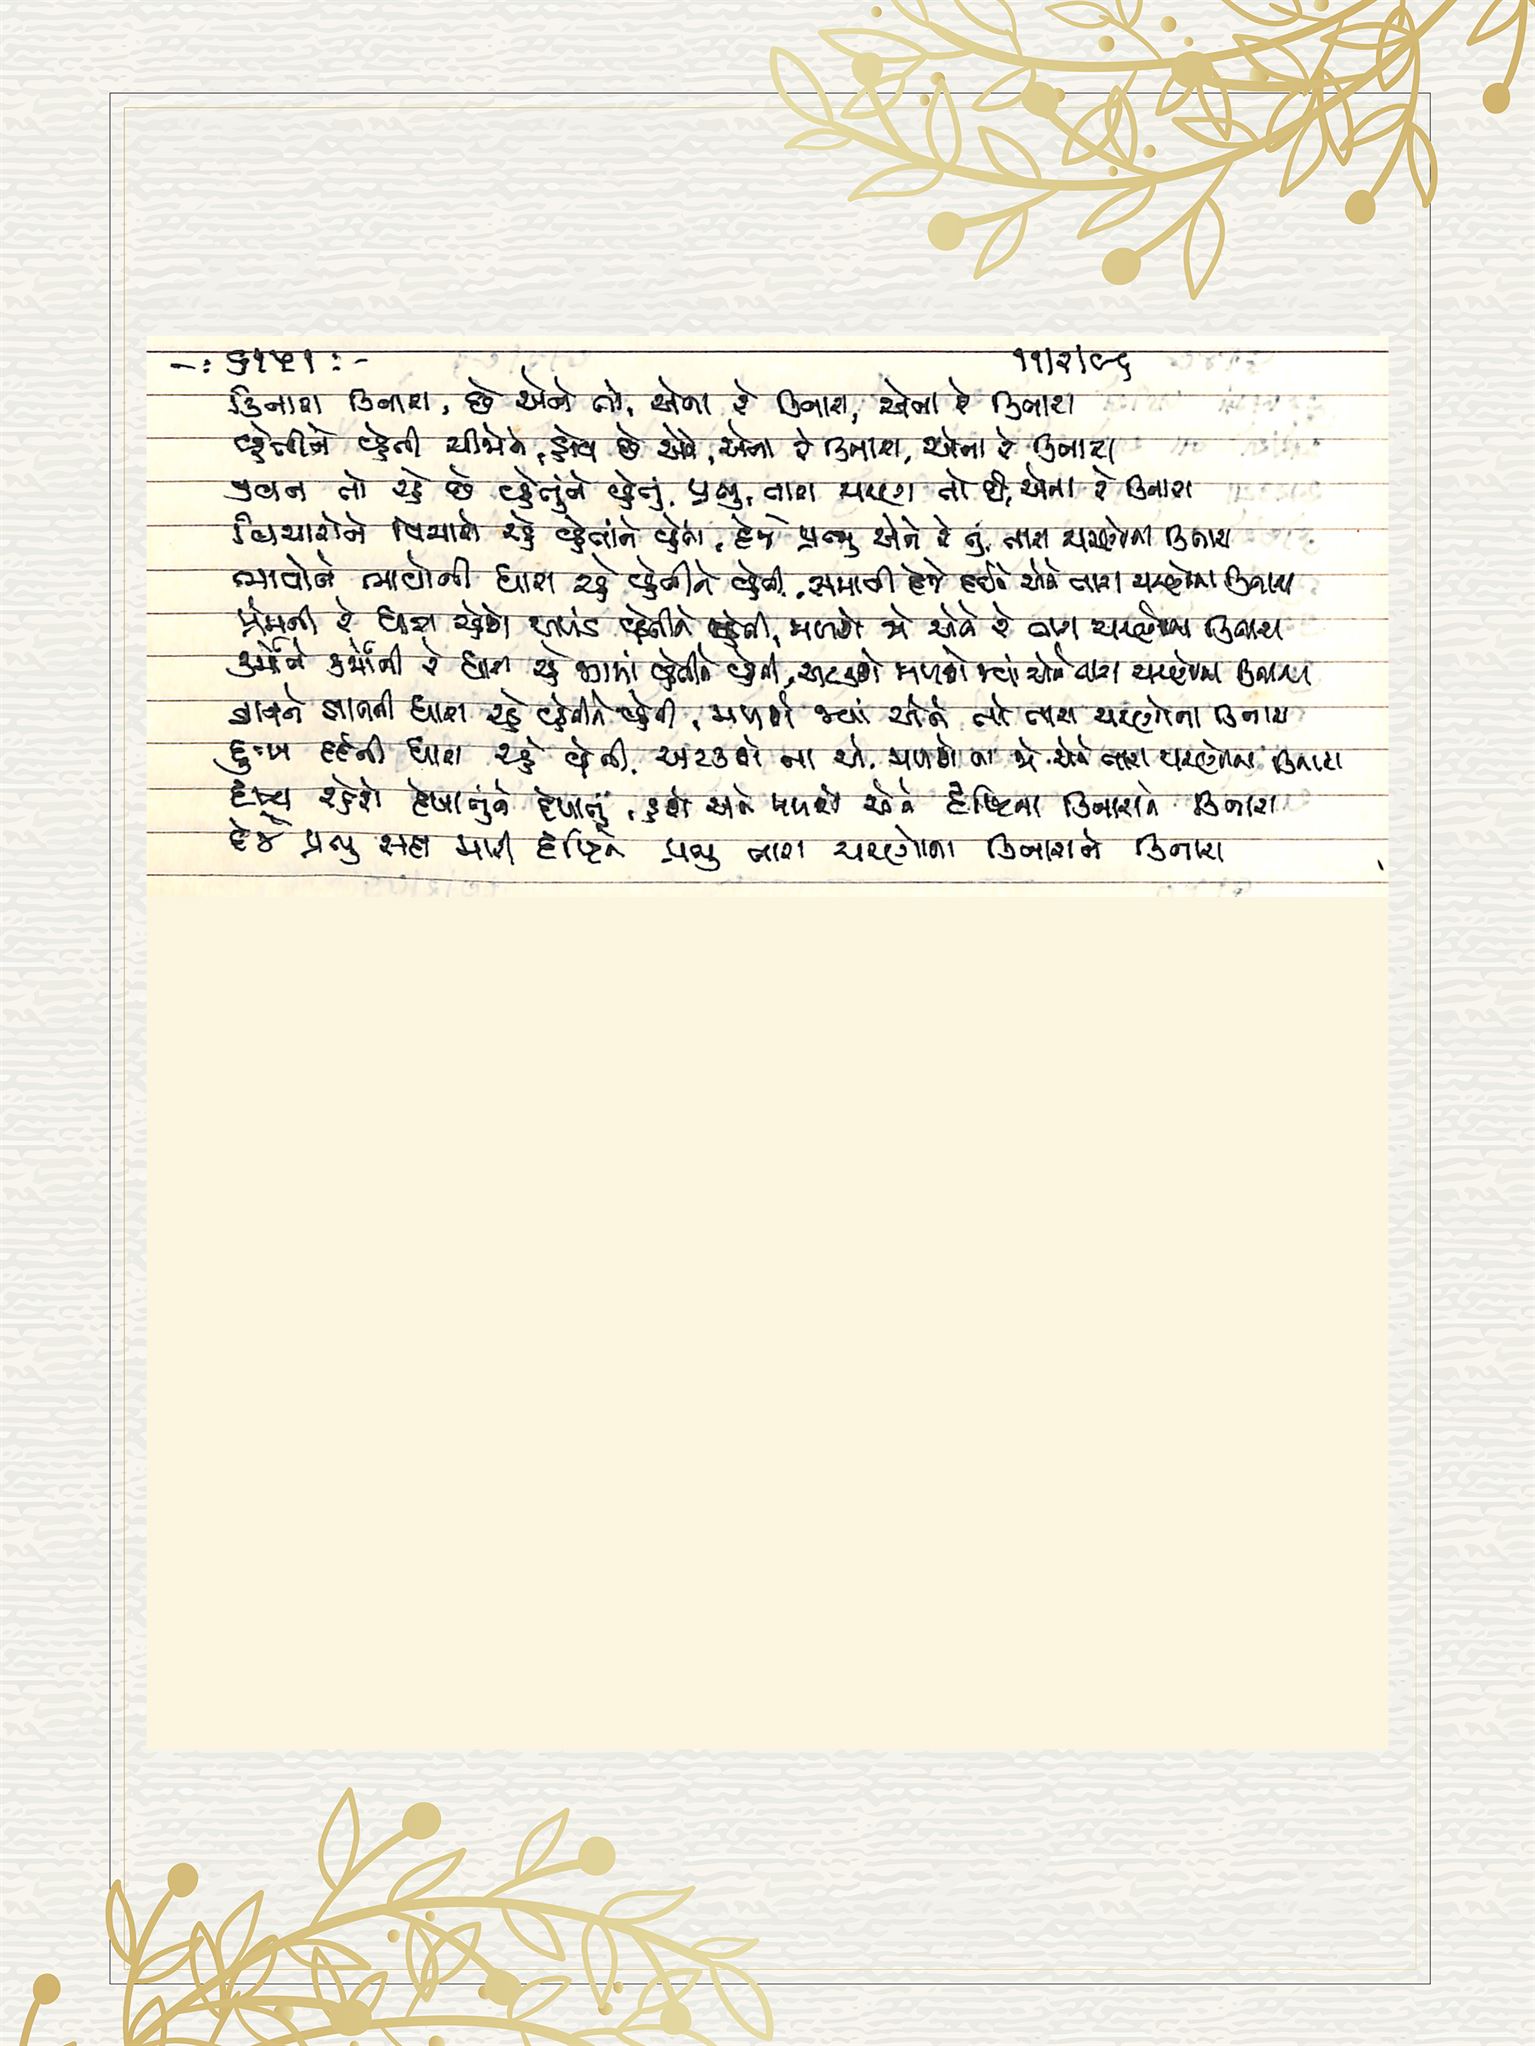 -: કાયા :-                    ૧૧/૨/૯૬
કિનારા કિનારા, છે એને તો, એના રે કિનારા, એના રે કિનારા
વ્હેતીને વ્હેતી ચીજને, હોય છે એને, એના રે કિનારા, એના રે કિનારા
જીવન તો રહે છે વ્હેતુંને વ્હેતું, પ્રભુ, તારા ચરણ તો છે, એના રે કિનારા
વિચારોને વિચારો રહે વ્હેતાંને વ્હેતા, દેજે પ્રભુ એને રે તું, તારા ચરણોના કિનારા
ભાવોને ભાવોની ધારા રહે વ્હેતીને વ્હેતી, સમાવી દેજે દઈને એને તારા ચરણોના કિનારા
પ્રેમની રે ધારા રહેશે અખંડ વ્હેતીને વ્હેતી, મળશે જો એને રે તારા ચરણોના કિનારા
કર્મોને કર્મોની રે ધારા રહે જગમાં વ્હેતીને વ્હેતી, અટકશે મળશે જ્યાં એને તારા ચરણોના કિનારા
જ્ઞાનને જ્ઞાનની ધારા રહે વ્હેતીને વ્હેતી, મળશે જ્યાં એને તો તારા ચરણોના કિનારા
દુઃખ દર્દની ધારા રહે વ્હેતી, અટકશે ના એ, મળશે ના જો એને તારા ચરણોના કિનારા
દૃશ્ય રહેશે દેખાતુંને દેખાતું, હશે અને મળશે એને દૃષ્ટિના કિનારાને કિનારા
દેજે પ્રભુ સદા મારી દૃષ્ટિને પ્રભુ તારા ચરણોના કિનારાને કિનારા